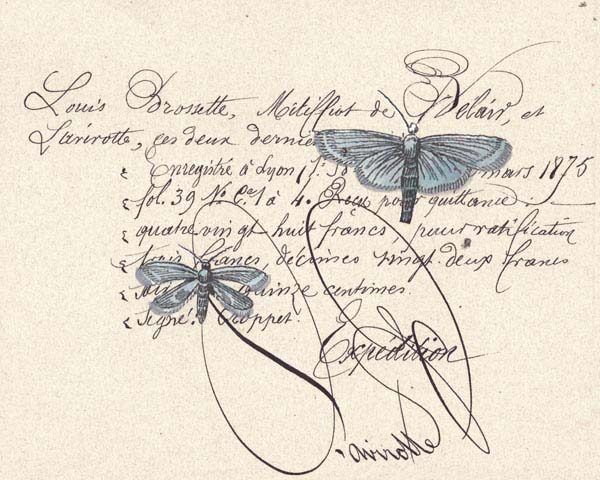 Louis Brossette, Mitiffiot de Velair, et
Lavirotte, ces deux dernie
Enregistré à Lyon mars 1875
fol. 39 N. C.e 1 à 4. Reçu pour quittance
quatre vingt huit francs, pour ratification
trois francs, décimes vingt deux francs
quinze centimes.
Signé:
Expédition
Lavirotte